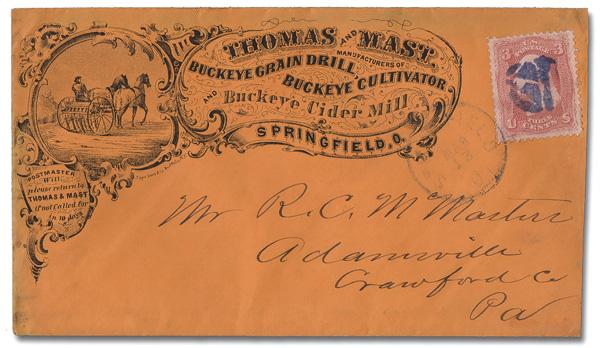 THOMAS AND MAST,
MANUFACTURERS OF
BUCKEYE GRAIN DRILL,
BUCKEYE CULTIVATOR
AND Buckeye Cider Mill
SPRINGFIELD, O.
POSTMASTER
Will
please return to
THOMAS & MAST
if not Called for
in 10 days
U.S. POSTAGE
3 3
THREE CENTS
U S
Mr R. C. McMasters
Adamsville
Crawford Co
Pa